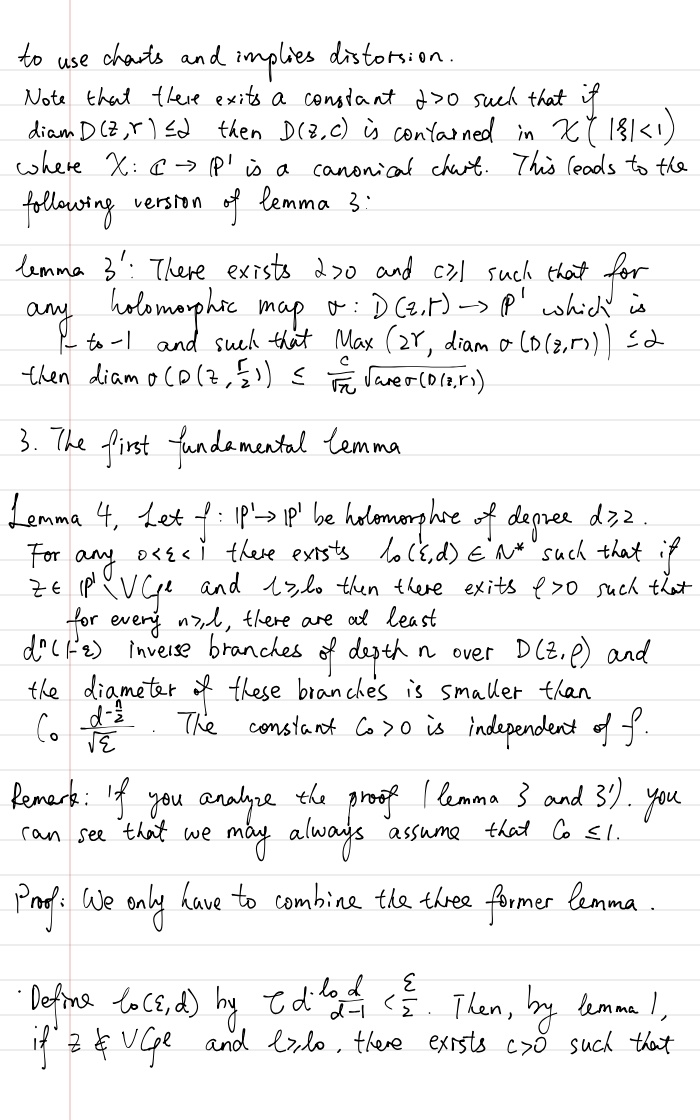 to use charts and implies distorsion.
Note that there exits a constant α>0 such that if
diam D(z,r) ≤α then D(z,c) is contarned in χ(|ξ|<1)
where χ: ℂ → ℙ¹ is a canonical chart. This leads to the
following version of lemma 3:
lemma 3': There exists α>0 and c≥1 such that for
any holomorphic map σ: D(z,r) → ℙ¹ which is
1-to-1 and such that Max (2r, diam σ(D(z,r))) ≤α
then diam σ(D(z, r/2)) ≤ c/√π √area σ(D(z,r))
3. The first fundamental lemma
Lemma 4, Let f: ℙ¹→ℙ¹ be holomorphre of degree d≥2.
For any 0<ε<1 there exists l₀(ε,d) ∈ N* such that if
z∈ ℙ¹\VCfˡ and l≥l₀ then there exits ρ>0 such that
for every n≥l, there are at least
dⁿ(1-ε) inverse branches of depth n over D(z,ρ) and
the diameter of these branches is smaller than
C₀ d^(-n/2)/√ε. The constant C₀>0 is independent of f.
Remark: If you analyze the proof (lemma 3 and 3'). you
can see that we may always assume that C₀ ≤1.
Proof: We only have to combine the three former lemma.
· Define l₀(ε,d) by τ d^(-l₀) d/(d-1) < ε/2. Then, by lemma 1,
if z ∉ VCfˡ and l≥l₀, there exists c>0 such that